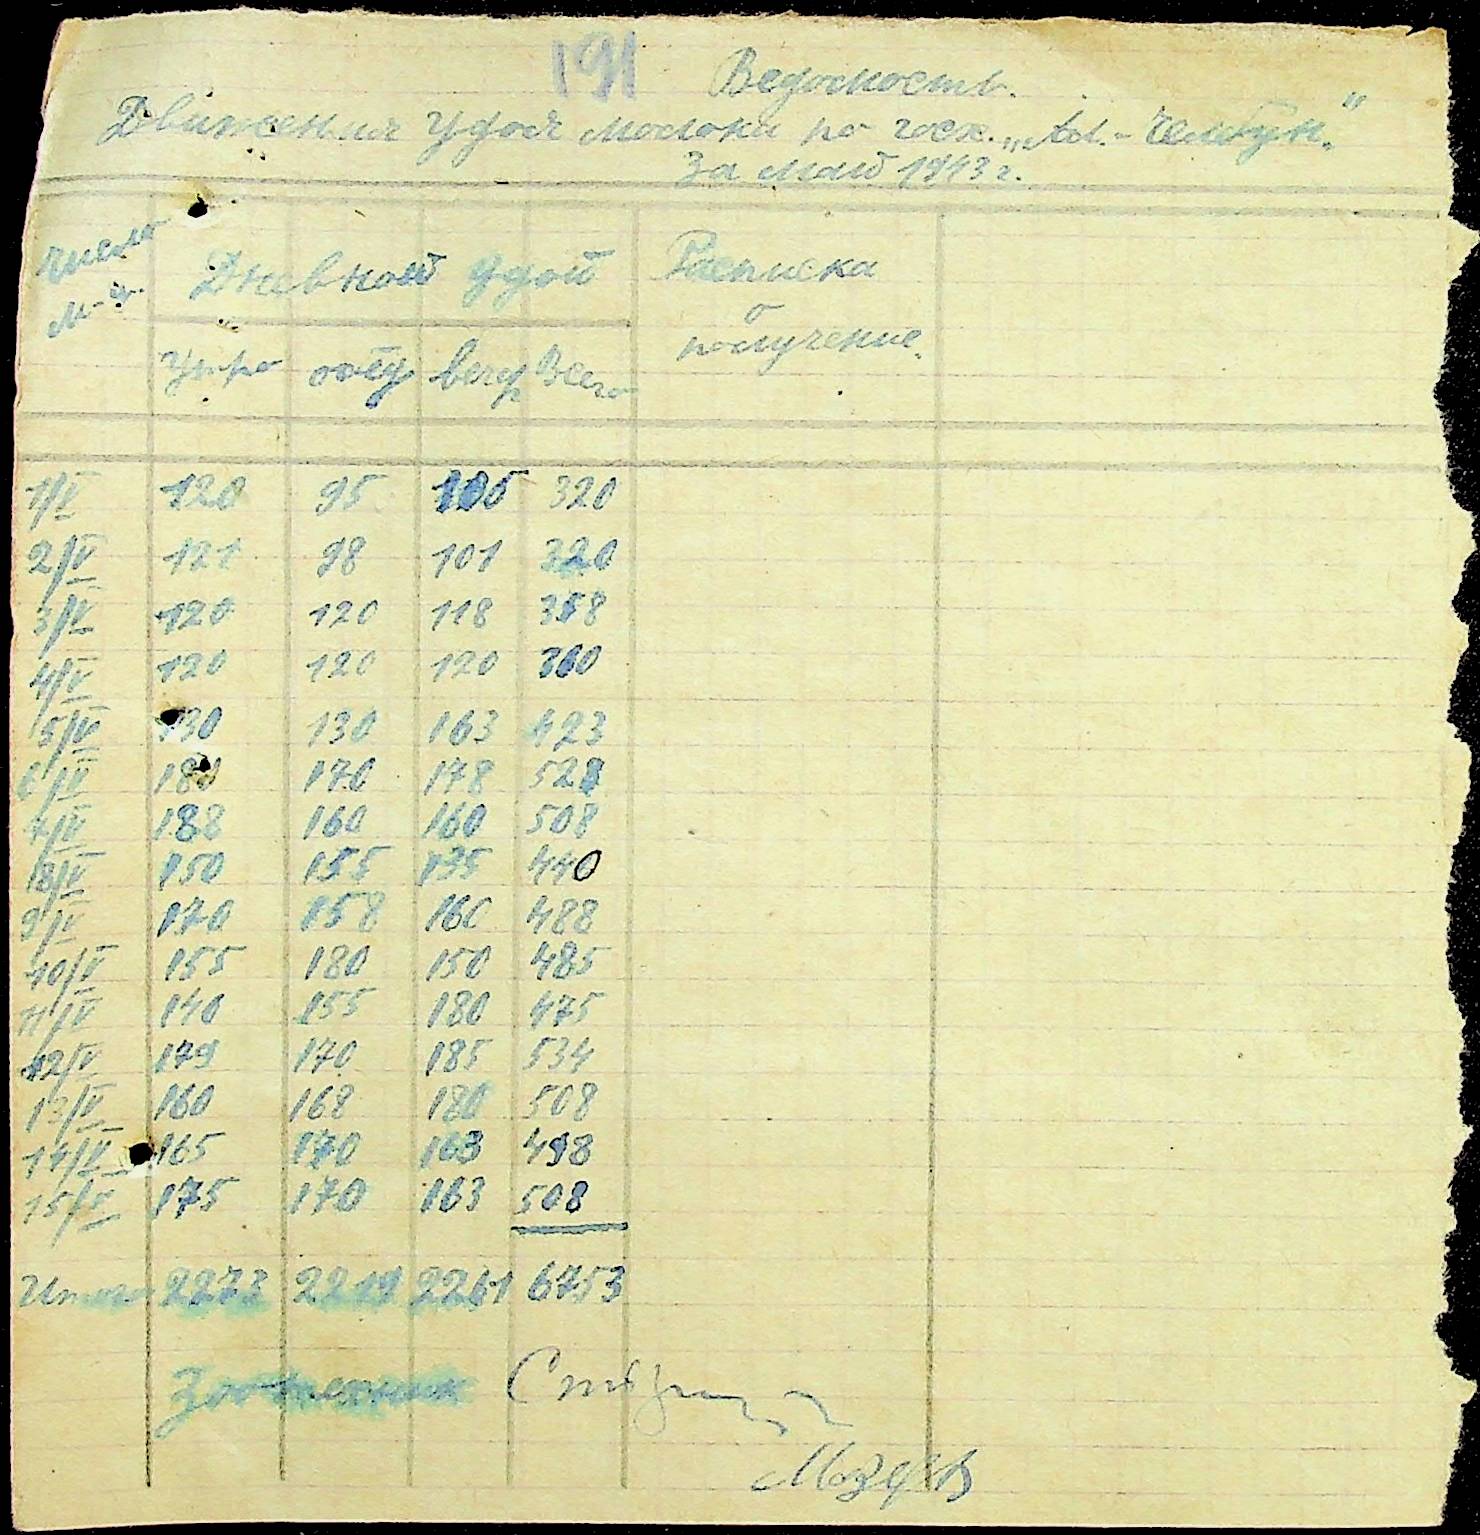 191 Ведомость.
Движения удоя молока по госх. „Ад.-Челтук."
за май 1943 г.
Число м-ц. Дневной удой Расписка о получение.
Утро обед вечер Всего
1/V 120 95 105 320
2/V 121 98 101 320
3/V 120 120 118 358
4/V 120 120 120 360
5/V 130 130 163 423
6/V 180 170 178 528
7/V 188 160 160 508
8/V 150 155 135 440
9/V 170 158 160 488
10/V 155 180 150 485
11/V 140 155 180 475
12/V 179 170 185 534
13/V 160 168 180 508
14/V 165 170 163 498
15/V 175 170 163 508
Итого 2273 2219 2261 6753
Зоотехник